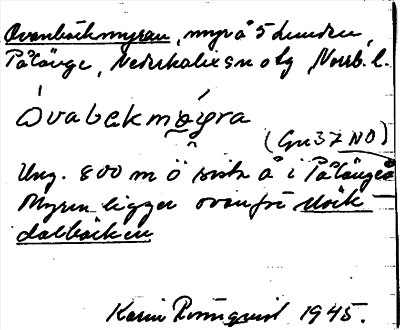 Ovanbäckmyran, myr å 5 Lunden,
Pålänge, Nederkalix sn o tg Norrb. l.
Óvabekmọýra
(Gn 37 NO)
Ung. 800 m Ö sista å i Pålänge
Myren ligger ovanför
dalbäcken
Karin Rönnquist 1945.